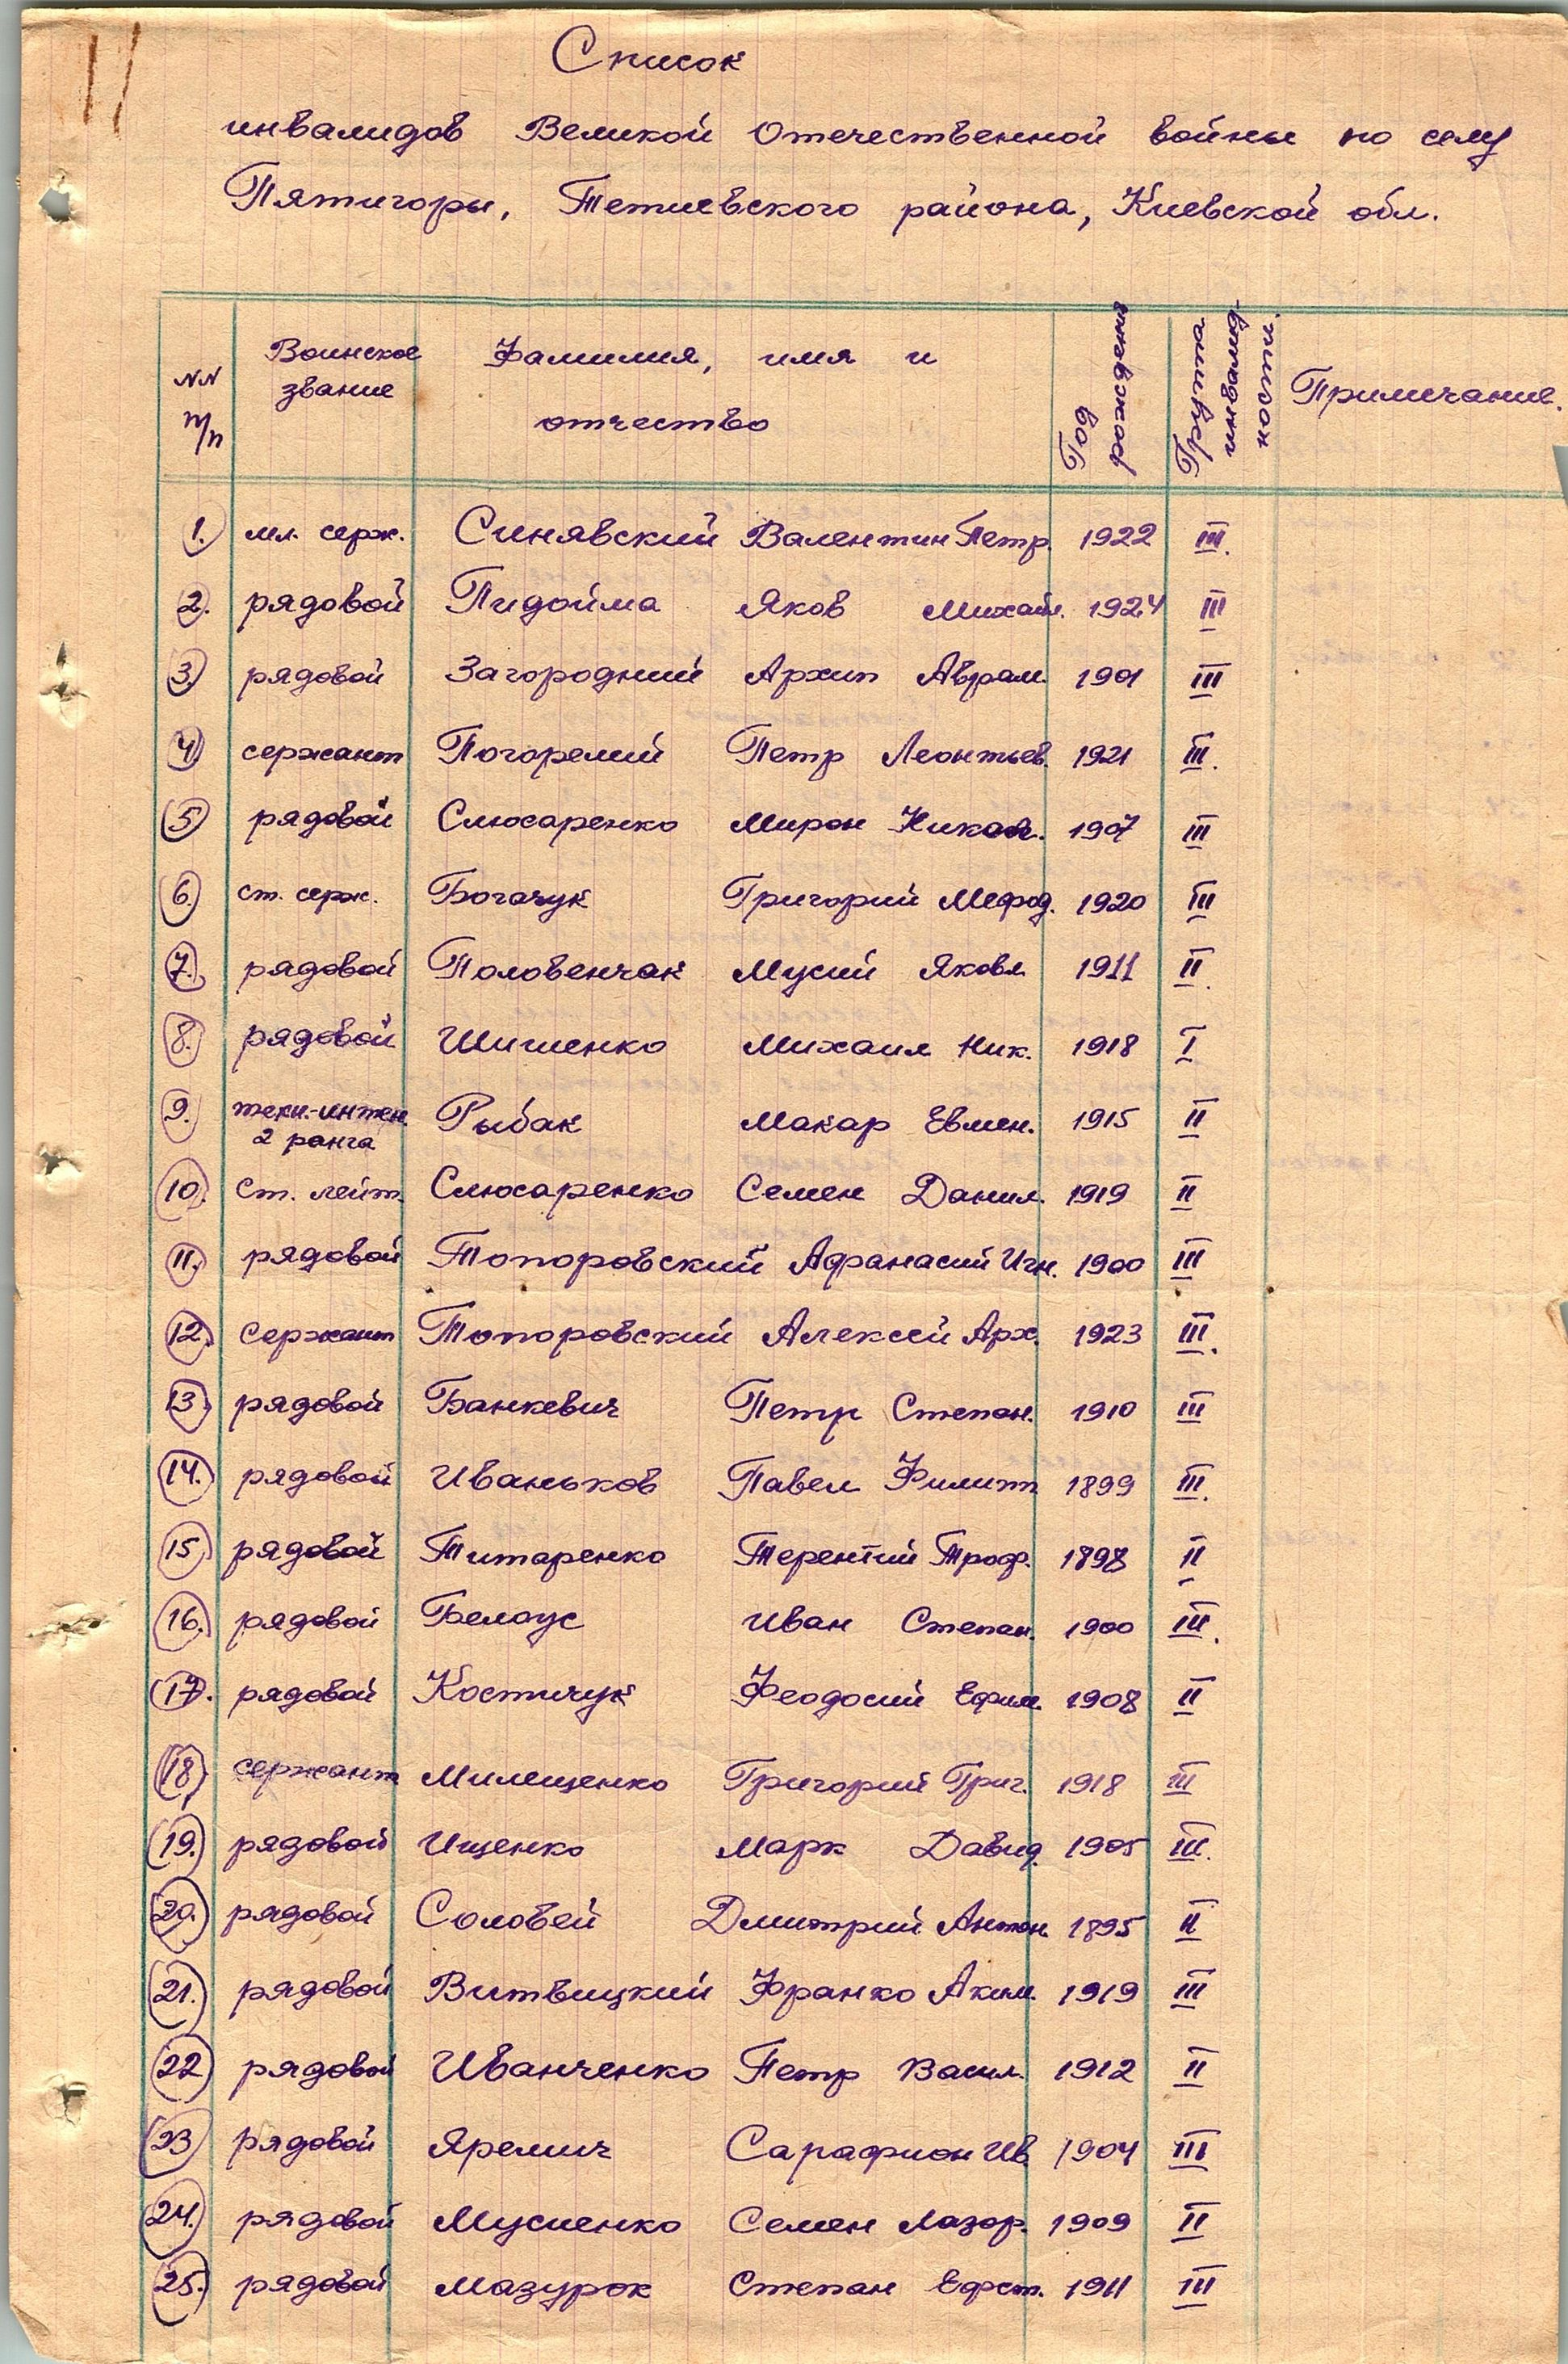 11
Список
инвалидов Великой Отечественной войны по селу
Пятигоры, Тетиевского района, Киевской обл.
NN п/п Воинское звание Фамилия, имя и отчество Год рождения Группа инвалидности Примечание.
1. мл. серж. Синявский Валентин Петр. 1922 III.
2. рядовой Пидойма Яков Михайл. 1924 III
3. рядовой Загородний Архип Аврам. 1901 III
4. сержант Погорелий Петр Леонтьев. 1921 III.
5. рядовой Слюсаренко Мирон Никол. 1907 III
6. ст. серж. Богачук Григорий Мефод. 1920 III
7. рядовой Половенчак Мусий Яковл. 1911 II.
8. рядовой Шишенко Михаил Ник. 1918 I
9. техн.-интен. 2 ранга Рыбак Макар Евмен. 1915 II
10. Ст. лейт. Слюсаренко Семен Данил. 1919 II
11. рядовой Топоровский Афанасий Игн. 1900 III
12. Сержант Топоровский Алексей Арх. 1923 III.
13. рядовой Банкевич Петр Степан. 1910 III
14. рядовой Иваньков Павел Филипп 1899 III.
15. рядовой Титаренко Терентий Троф. 1898 II
16. рядовой Белоус Иван Степан. 1900 III.
17. рядовой Костичук Феодосий Ефим. 1908 II
18. сержант Милещенко Григорий Григ. 1918 III
19. рядовой Ищенко Марк Давид. 1905 III.
20. рядовой Соловей Дмитрий Антон. 1895 II
21. рядовой Витвицкий Франко Аким. 1919 III
22 рядовой Иванченко Петр Васил. 1912 II
23 рядовой Яремич Сарафион Ив. 1904 III
24. рядовой Мусиенко Семен Лазор. 1909 II
25. рядовой Мазурок Степан Ефст. 1911 III